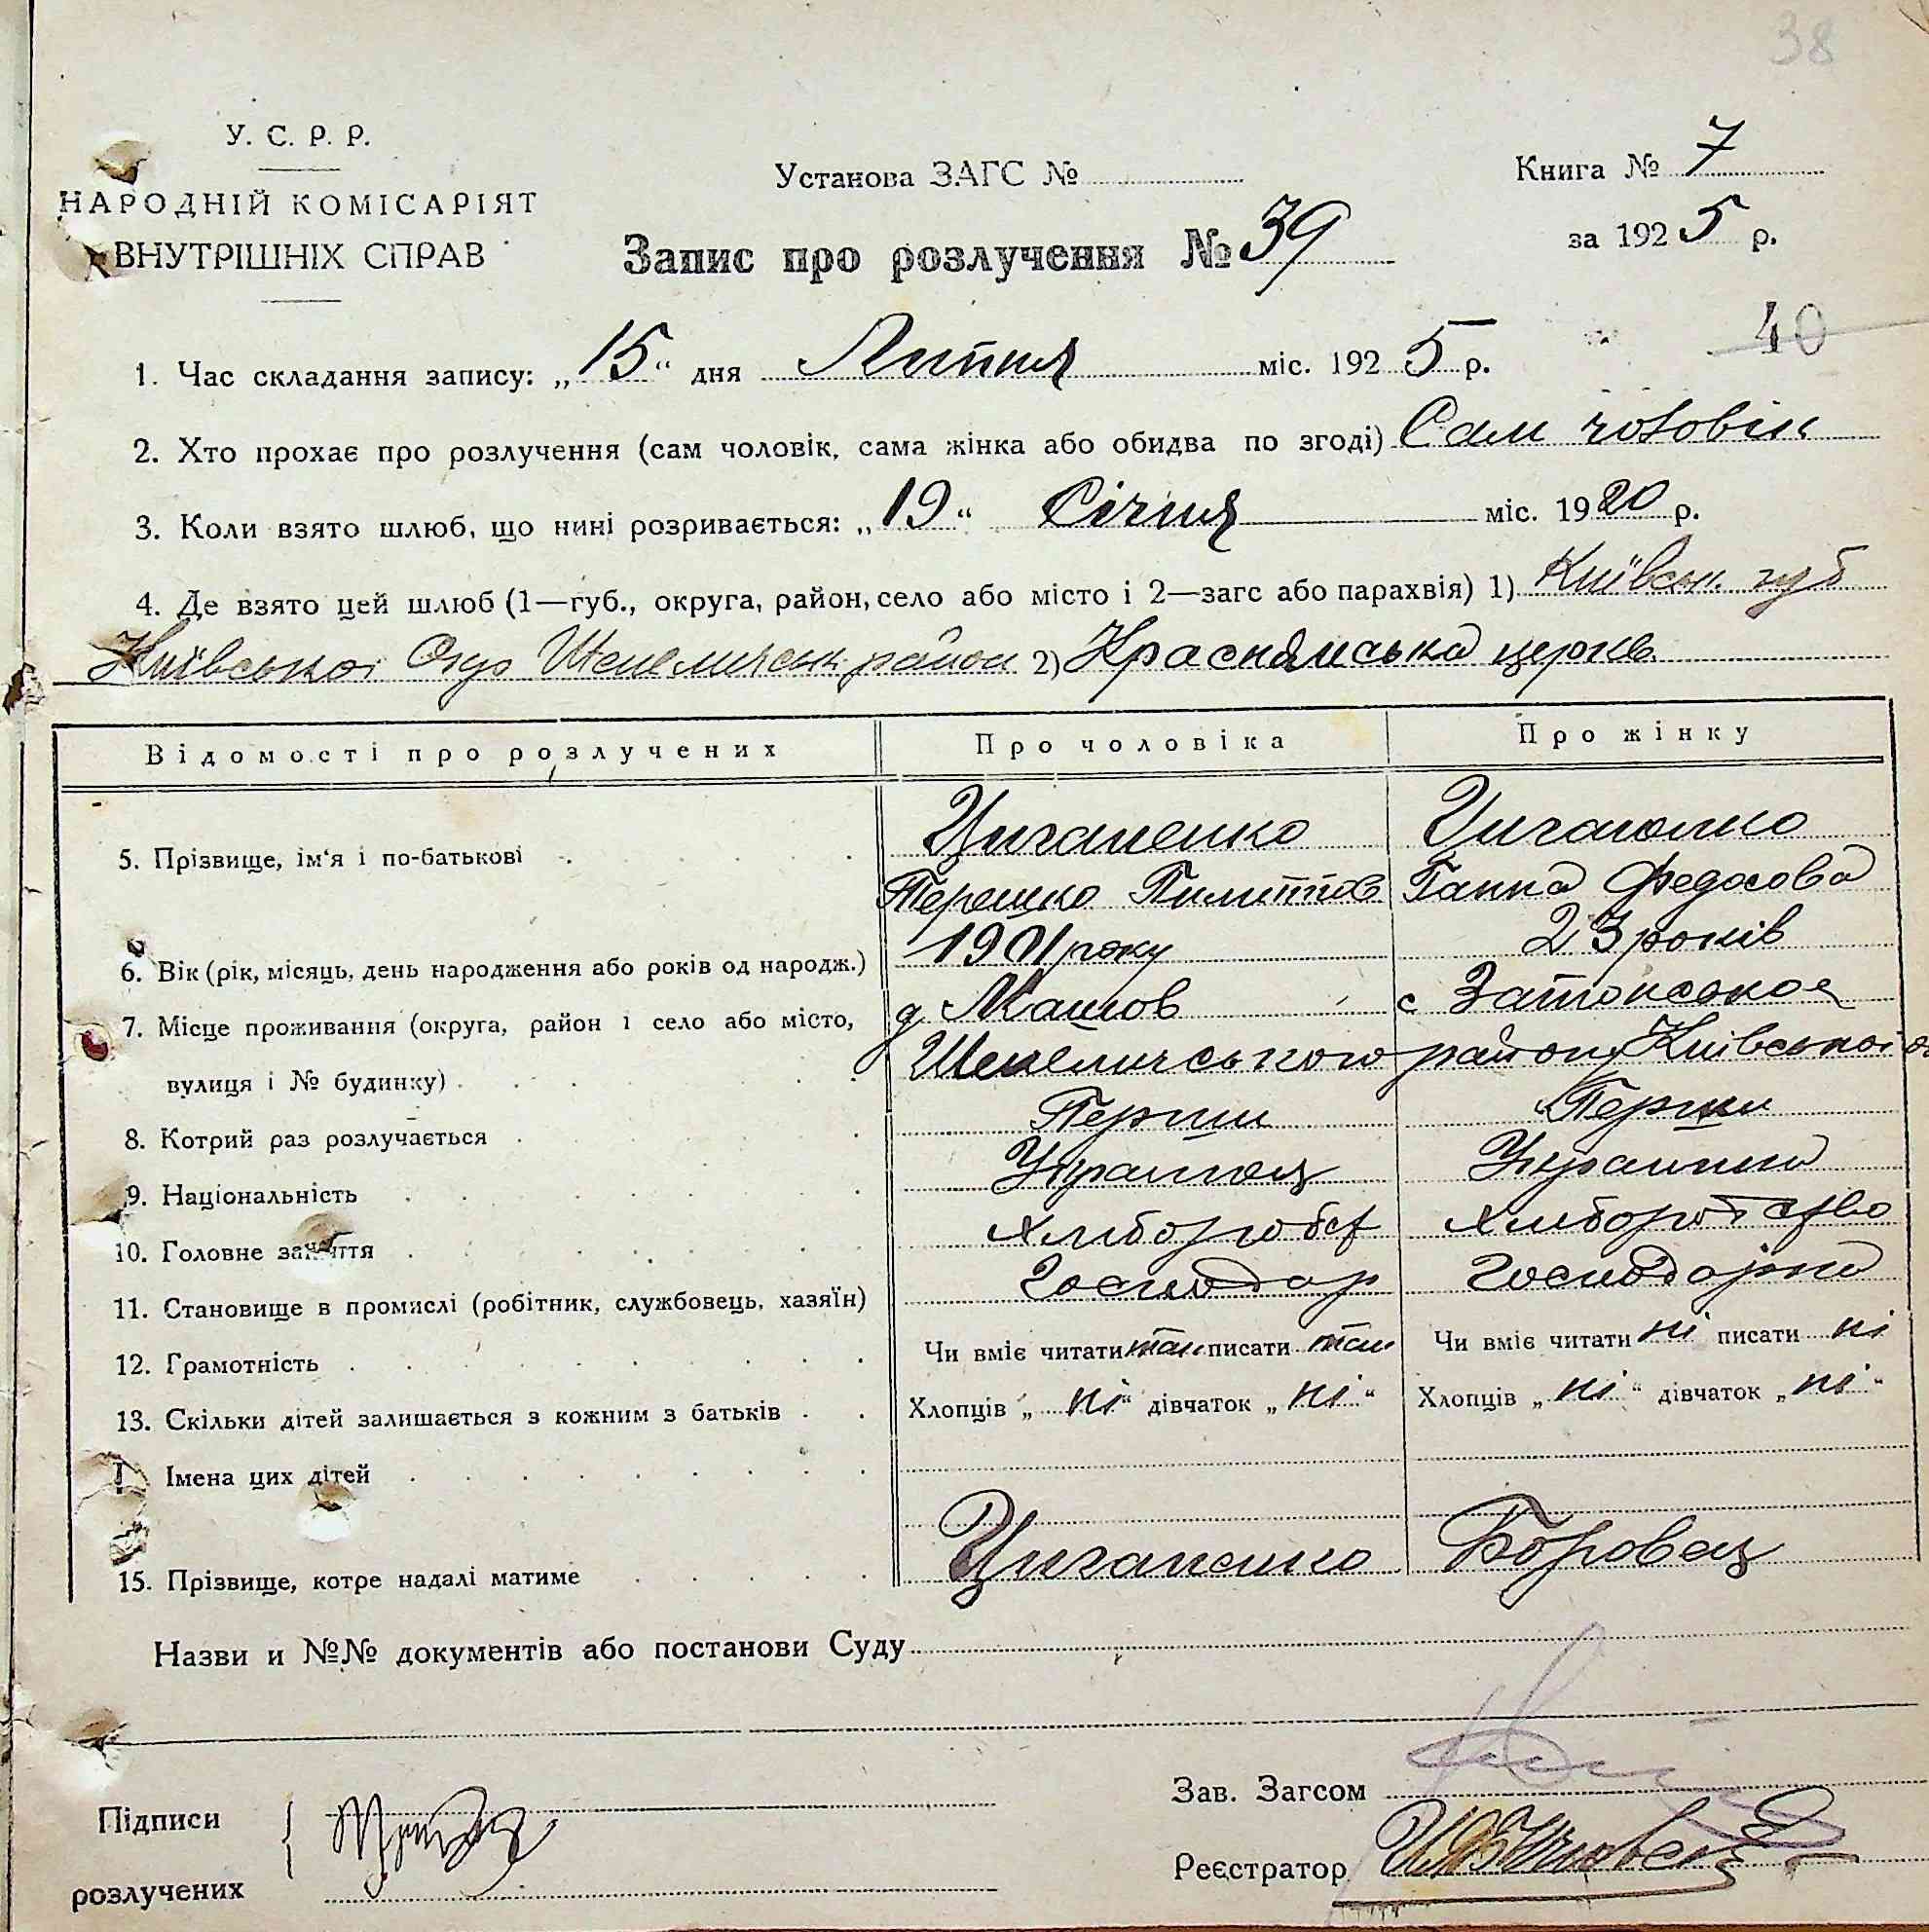 38
У. С. Р. Р.
НАРОДНІЙ КОМІСАРІЯТ
ВНУТРІШНІХ СПРАВ
Установа ЗАГС №
Книга № 7
за 1925 р.
Запис про розлучення № 39
40
1. Час складання запису: „15“ дня Липня міс. 1925 р.
2. Хто прохає про розлучення (сам чоловік, сама жінка або обидва по згоді) Сам чоловік
3. Коли взято шлюб, що нині розривається: „19“ Січня міс. 1920 р.
4. Де взято цей шлюб (1—губ., округа, район, село або місто і 2—загс або парахвія) 1) Київськ. губ
Київської Окр Шепеличськ. район 2) церкв
Відомості про розлучених Про чоловіка Про жінку
5. Прізвище, ім‘я і по-батькові Циганенко Циганенко
Терешко Пилипов Ганна Федосова
6. Вік (рік, місяць, день народження або років од народж.) 1901 року 23 років
7. Місце проживання (округа, район і село або місто, д Машов с
вулиця і № будинку) Шепеличського району Київської
8. Котрий раз розлучається Перший Перший
9. Національність Українец Українка
10. Головне заняття хлиборобст хлиборобство
11. Становище в промислі (робітник, службовець, хазяїн) Господар Господарка
12. Грамотність Чи вміє читати так писати так Чи вміє читати ні писати ні
13. Скільки дітей залишається з кожним з батьків Хлопців „ні“ дівчаток „ні“ Хлопців „ні“ дівчаток „ні“
Імена цих дітей
15. Прізвище, котре надалі матиме Циганенко Боровец
Назви и №№ документів або постанови Суду
Зав. Загсом
Підписи
розлучених
Реєстратор